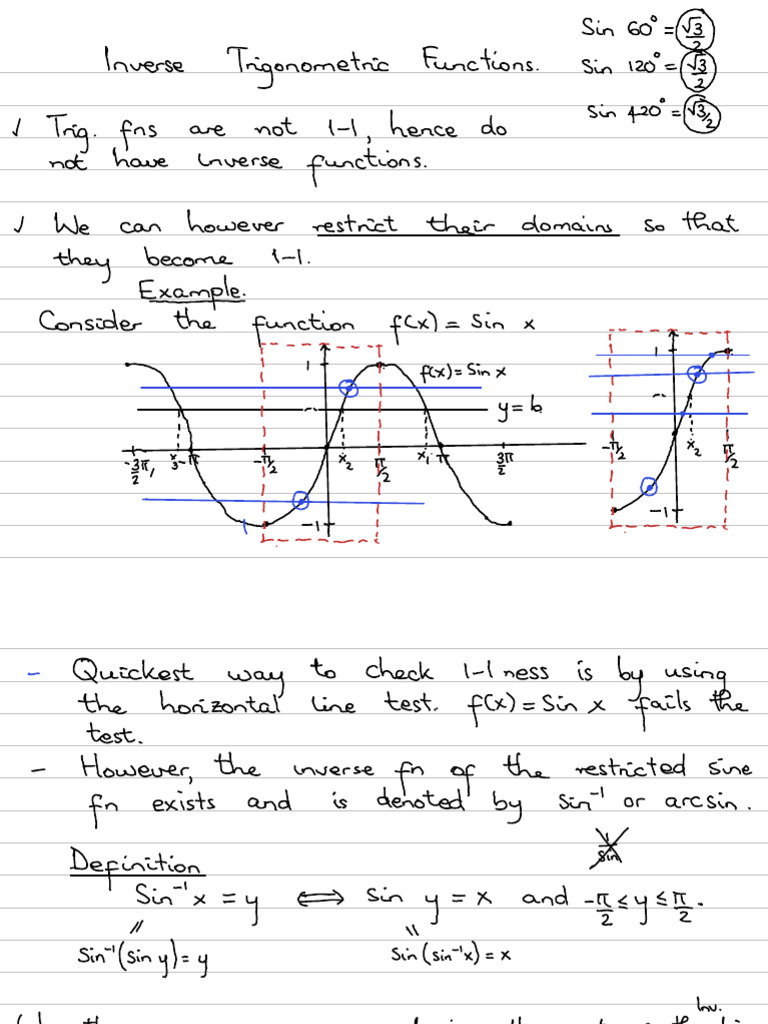 Sin 60° = √3/2
Inverse Trigonometric Functions.
Sin 120° = √3/2
Sin 420° = √3/2
✓ Trig. fns are not 1-1, hence do
not have inverse functions.
✓ We can however restrict their domains so that
they become 1-1.
Example.
Consider the function f(x) = Sin x
1
f(x) = Sin x
y = b
-3π/2, x3 -π -π/2 x2 π/2 x1 π 3π/2
-1
1
-π/2 x2 π/2
-1
- Quickest way to check 1-1 ness is by using
the horizontal line test. f(x) = Sin x fails the
test.
- However, the inverse fn of the restricted sine
fn exists and is denoted by sin⁻¹ or arcsin.
1/sin
Definition
Sin⁻¹x = y ⟺ sin y = x and -π/2 ≤ y ≤ π/2.
Sin⁻¹(sin y) = y
Sin(sin⁻¹x) = x
Inv.